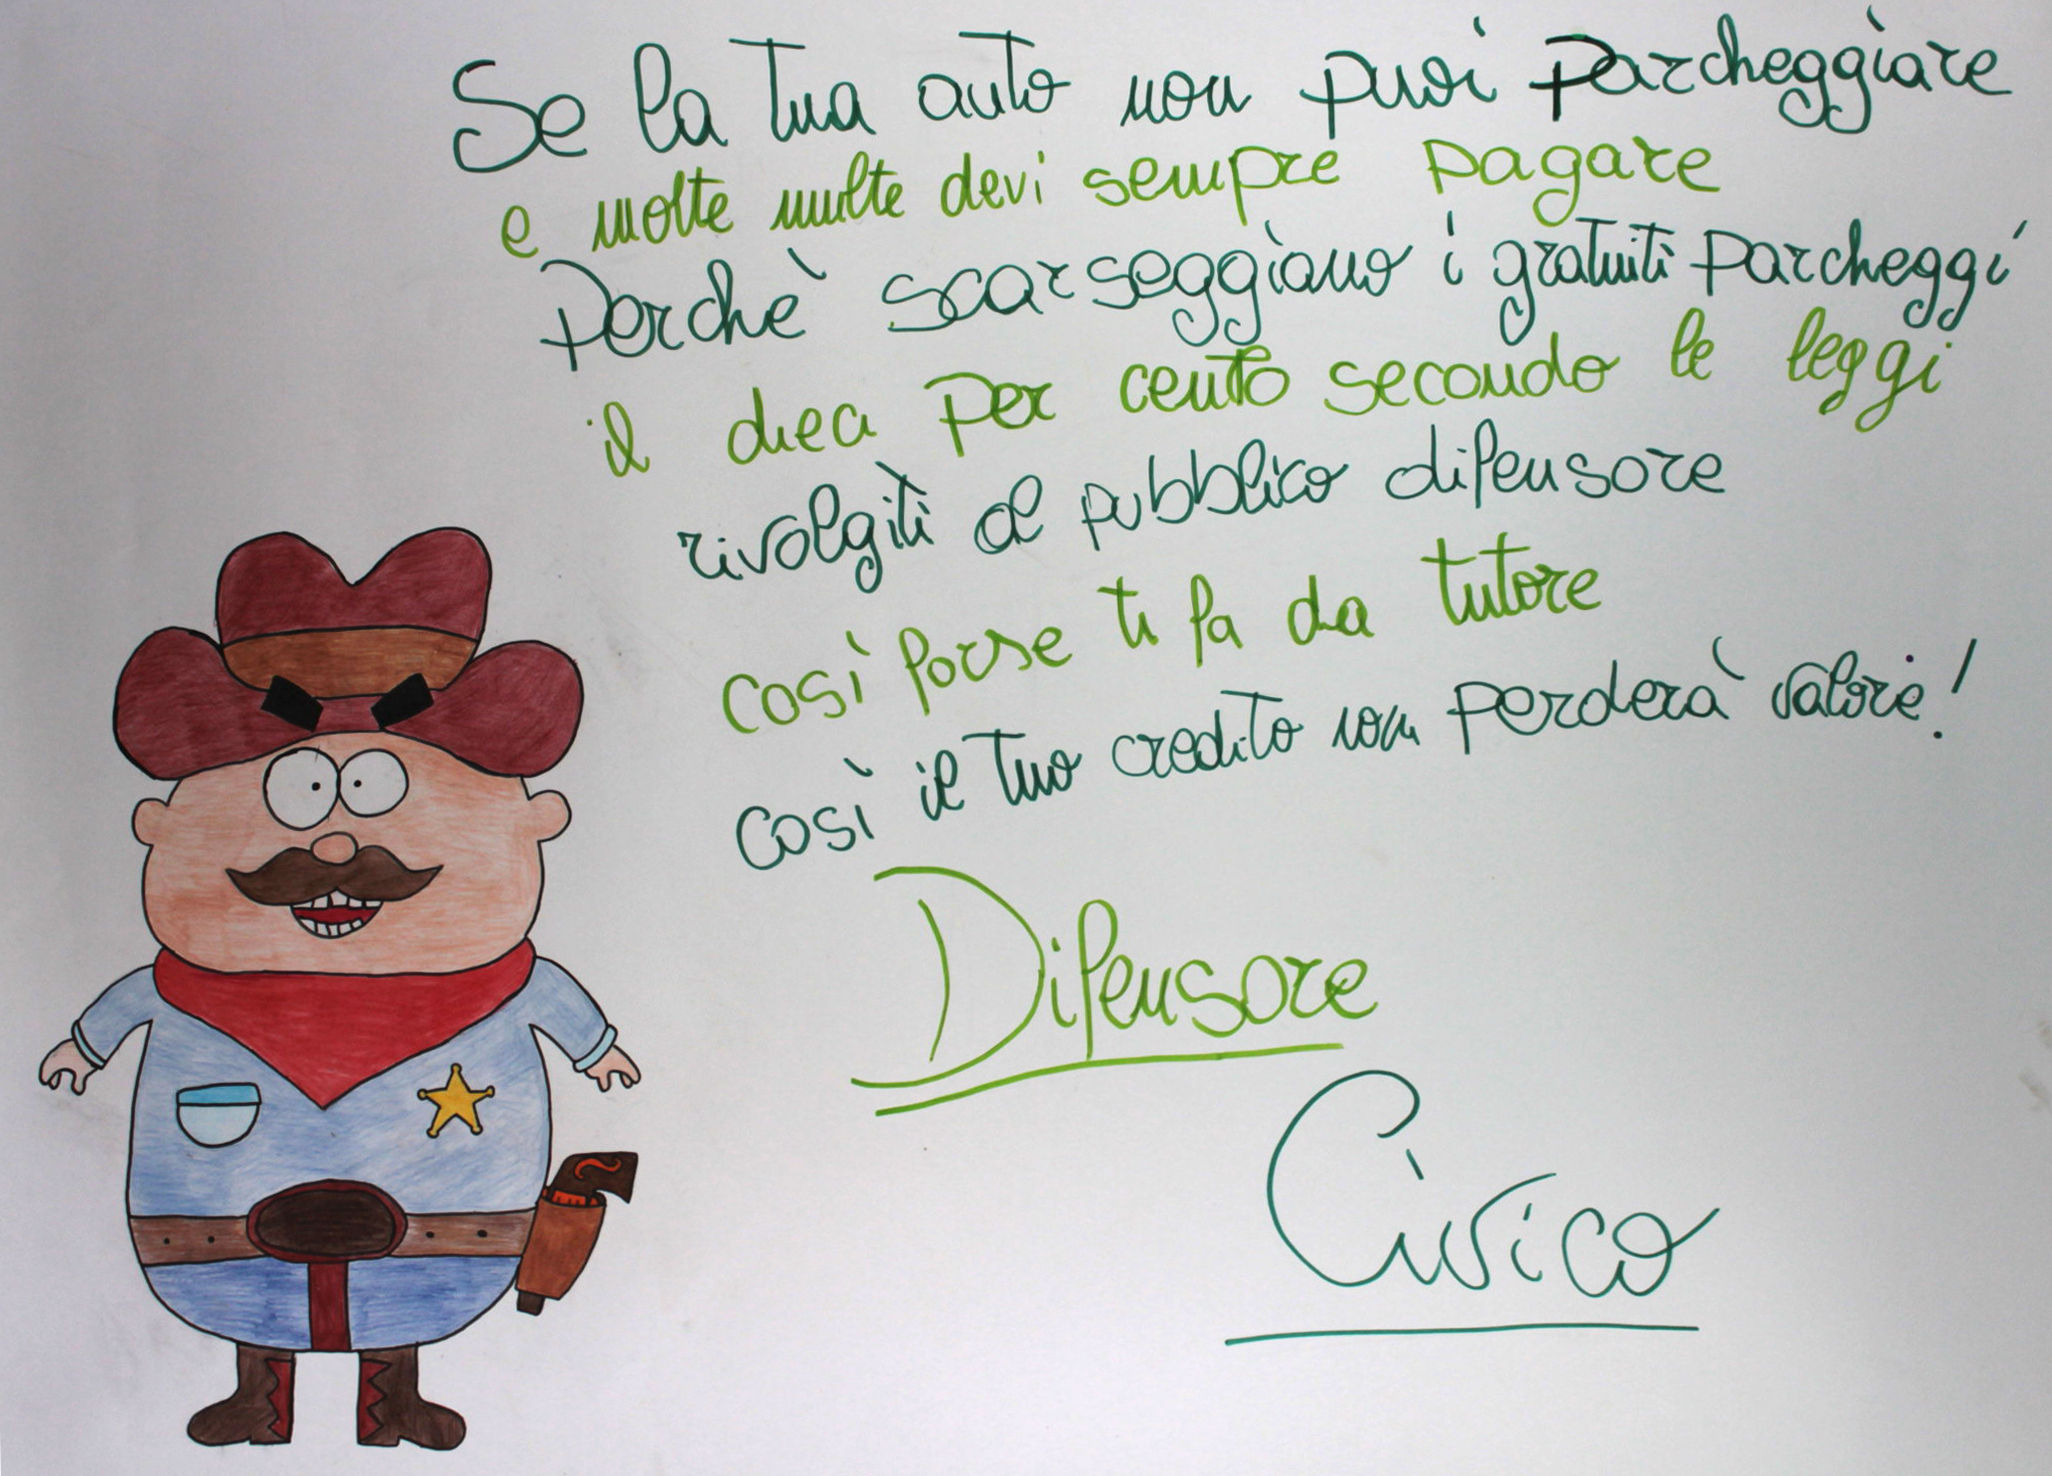 Se la tua auto non puoi parcheggiare
e molte multe devi sempre pagare
Perchè scarseggiano i gratuiti parcheggi
il dieci per cento secondo le leggi
rivolgiti al pubblico difensore
così forse ti fa da tutore
così il tuo credito non perderà valore!
Difensore
Civico